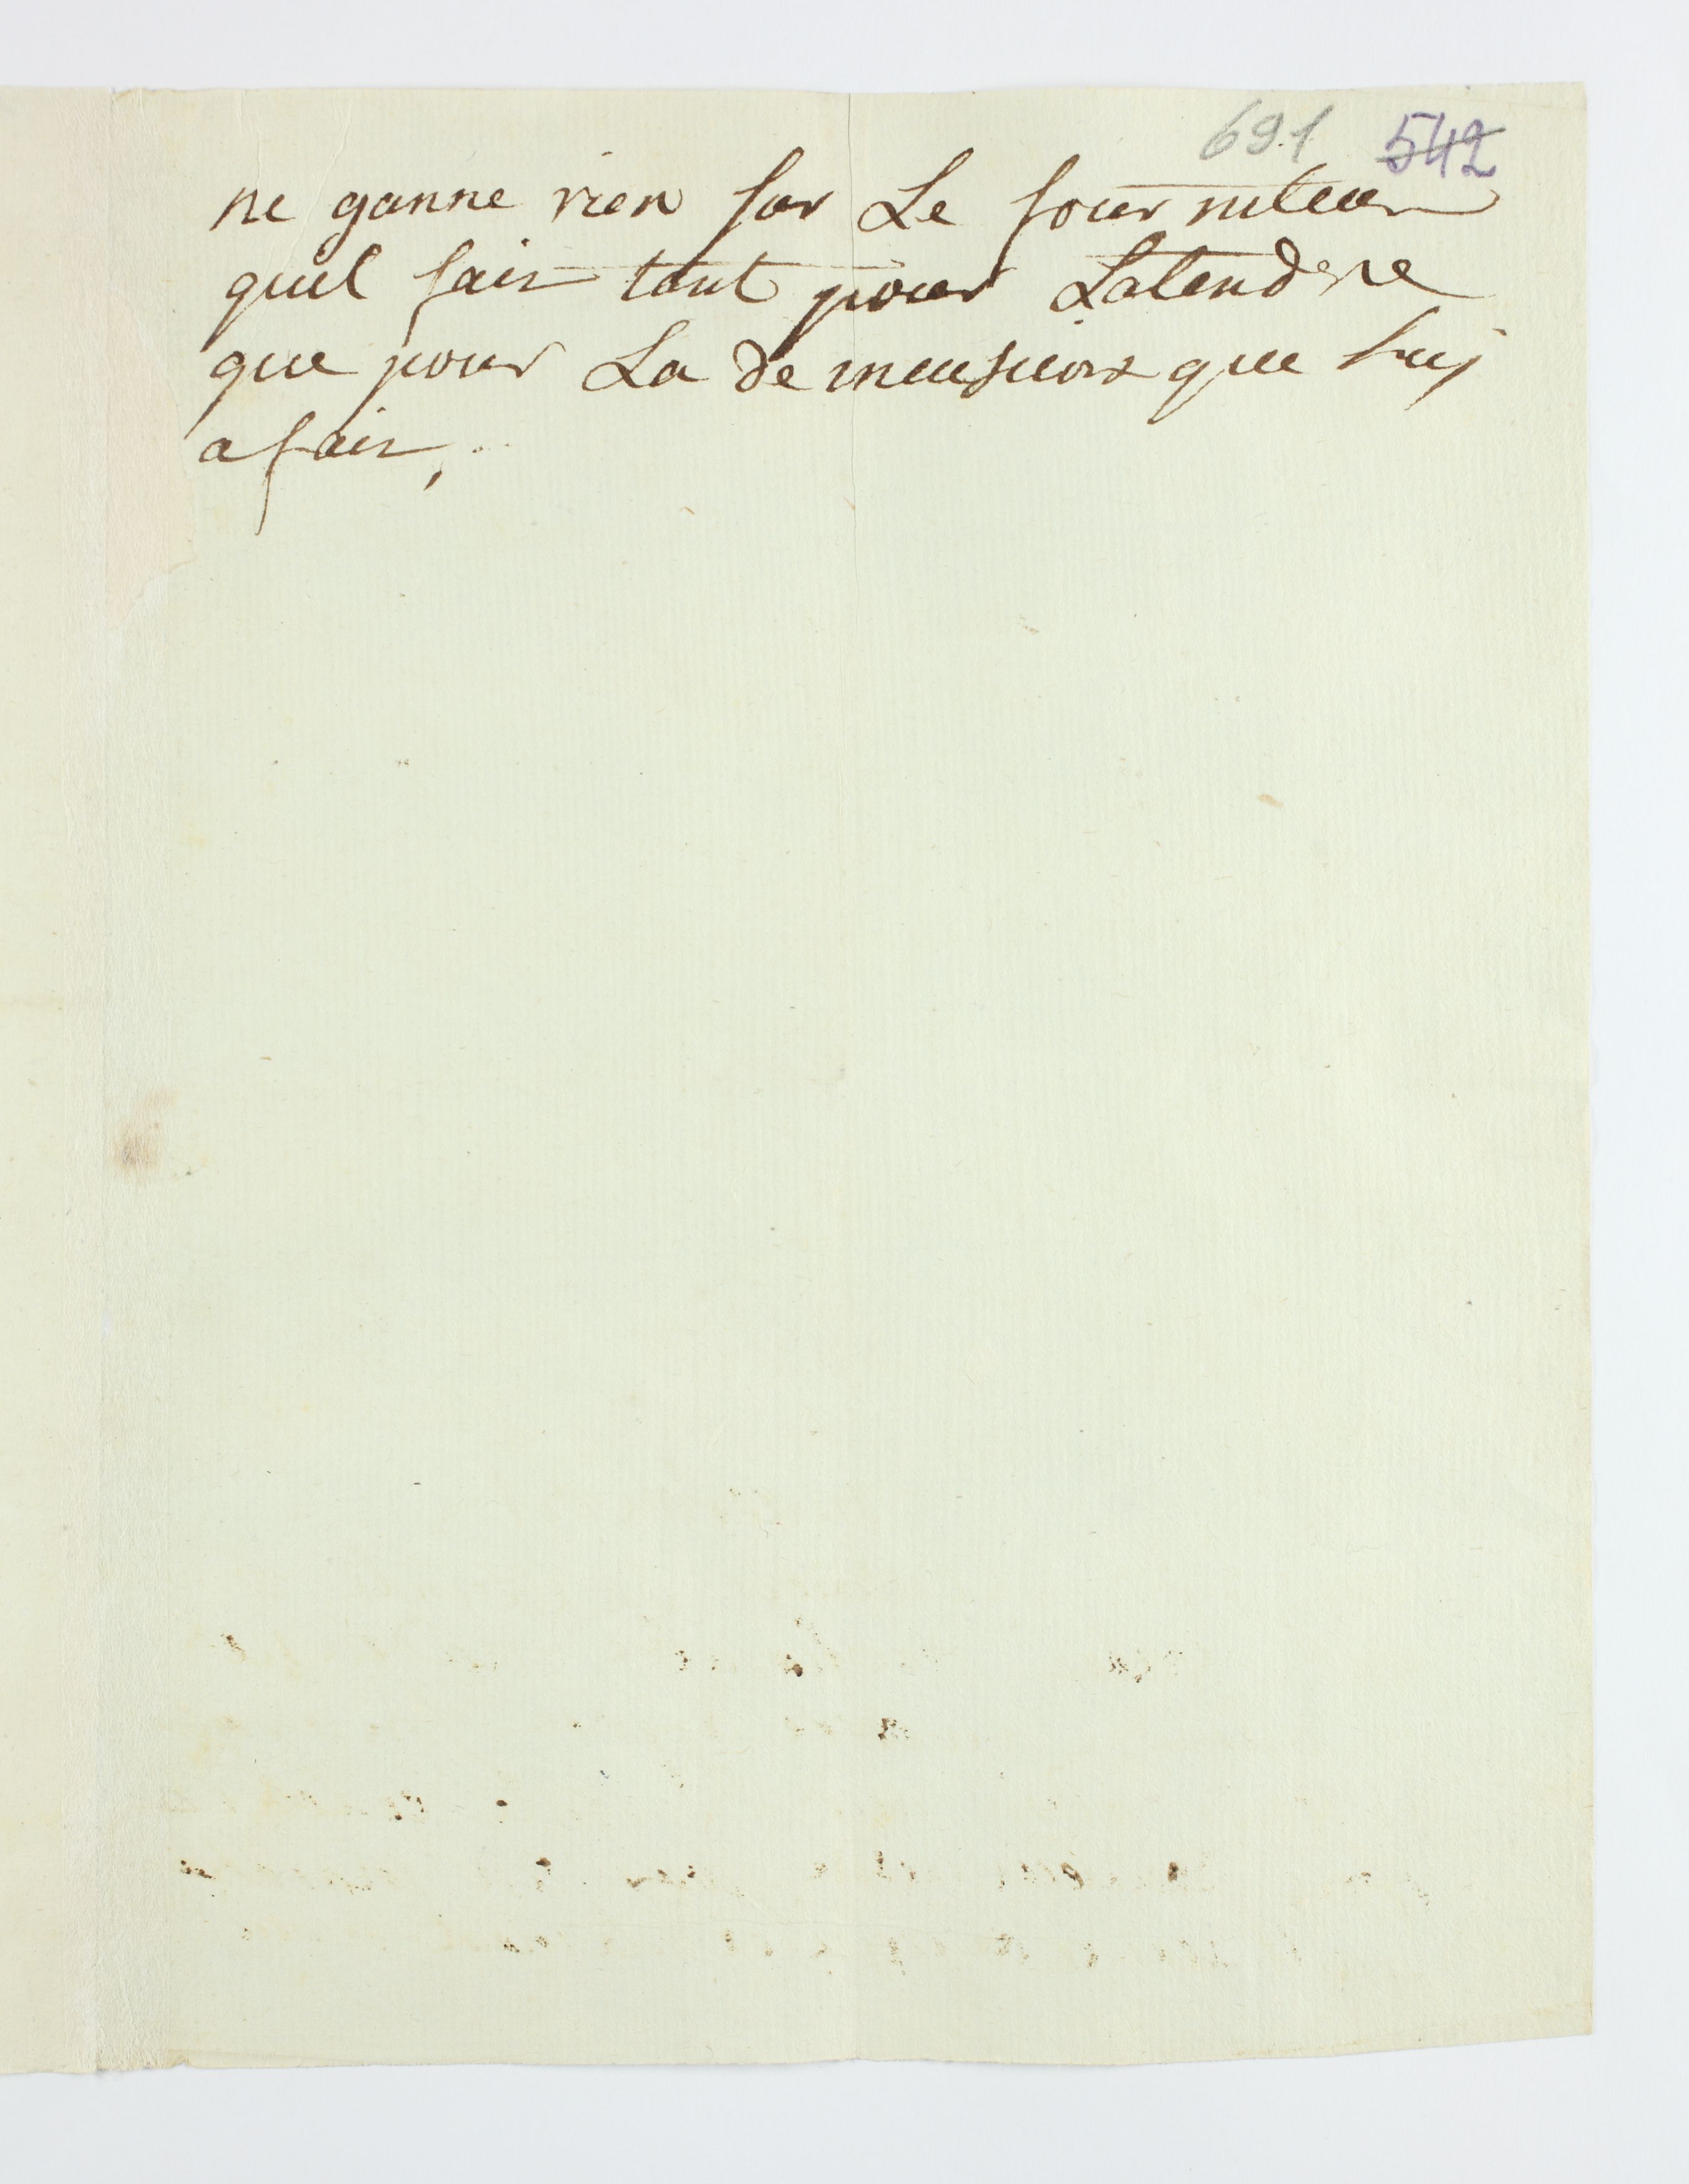 691 542
ne ganne rien sur Le fourniteur
quil fair tant pour Latendere
que pour La de meusuiore que luy
a fair,